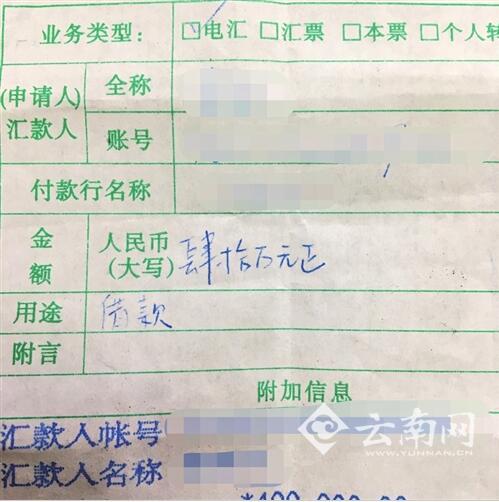 业务类型: □电汇 □汇票 □本票 □个人转
(申请人)
汇款人
全称
账号
付款行名称
金额
人民币
(大写)
肆拾万元正
用途
借款
附言
附加信息
汇款人帐号
汇款人名称
云南网
WWW.YUNNAN.CN